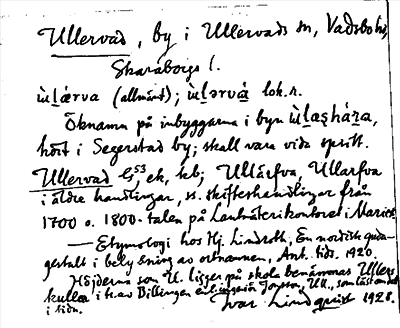 Ullervad, by i Ullervads sn, Vadsbo hd,
Skaraborgs l.
(allmänt); lok. r.
Öknamn på inbyggarna i byn
hört i Segerstad by; skall vara vida spritt.
Ullervad ek, hb; Ullärfva, Ullarfva
i äldre handlingar, ss. skifteshandlingar från
1700 o. 1800-talen på Lantmäterikontoret i Mariest.
— Etymologi hos Hj. Lindroth, En nordisk guda-
gestalt i belysning av ortnamnen, Ant. tids. 1920.
Höjderna som U. ligger på skola benämnas Ullers
kulla i tr. av Billingen enl. , som läst det
i tidn. Ivar Lindquist 1928.